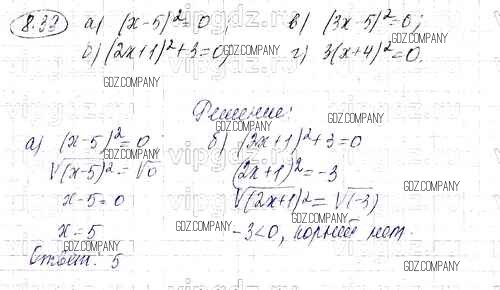 8.33 а) (x-5)²=0; в) (3x-5)²=0;
б) (2x+1)²+3=0; г) 3(x+4)²=0.
Решение:
а) (x-5)²=0
√(x-5)²=√0
x-5=0
x=5
Ответ: 5
б) (2x+1)²+3=0
(2x+1)²=-3
√(2x+1)²=√(-3)
-3<0, корней нет.
GDZ.COMPANY
GDZ.COMPANY
GDZ.COMPANY
GDZ.COMPANY
GDZ.COMPANY
GDZ.COMPANY
GDZ.COMPANY
GDZ.COMPANY
GDZ.COMPANY
GDZ.COMPANY
GDZ.COMPANY
GDZ.COMPANY